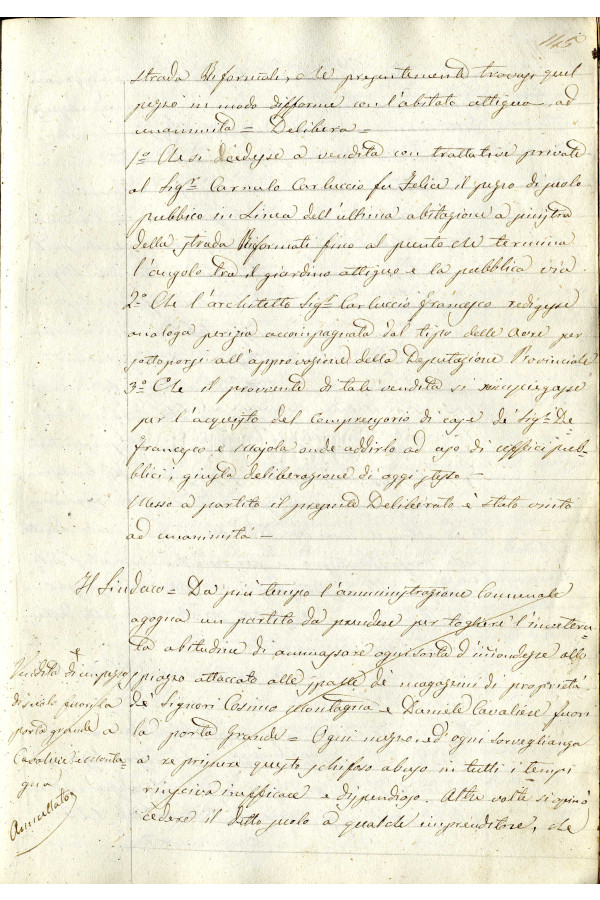 145
strada Riformati, e le presentemente trovasi quel
pezzo in modo difforme con l'abitato attiguo, ad
unanimità = Delibera =
1º Che si cedesse a vendita con trattative private
al Sigr. Carmelo Carluccio fu Felice il pezzo di suolo
pubblico in linea dell'ultima abitazione a sinistra
della strada Riformati fino al punto che termina
l'angolo tra il giardino attiguo e la pubblica via.
2º Che l'architetto Sigr. Carluccio Francesco redigesse
analoga perizia accompagnata dal tipo delle aree per
sottoporsi all'approvazione della Deputazione Provinciale
3º Che il provvente di tale vendita si rimpiegasse
per l'acquisto del compressorio di case de' Sigri. De
Francesco e Majola onde addirlo ad uso di uffici pub-
blici, giusta deliberazione di oggi stesso =
Messo a partito il presente Deliberato è stato vinto
ad unanimità =
Il Sindaco = Da più tempo l'amministrazione Comunale
agogna un partito da prendere per togliere l'invetera-
ta abitudine di ammassare ogni sorta d'immondezze allo
spiazzo attaccato alle spalle de' magazzini di proprietà
de' Signori Cosimo Montagna e Daniele Cavaliere fuori
la porta Grande = Ogni mezzo, ed ogni sorveglianza
a reprimere questo schifoso abuso in tutti i tempi
riusciva inefficace e dispendioso. Altre volte si opinò
cedere il detto suolo a qualche imprenditore, che
Vendita di un pezzo
di suolo fuori la
porta grande a
Cavaliere e Monta-
gna
Annullato